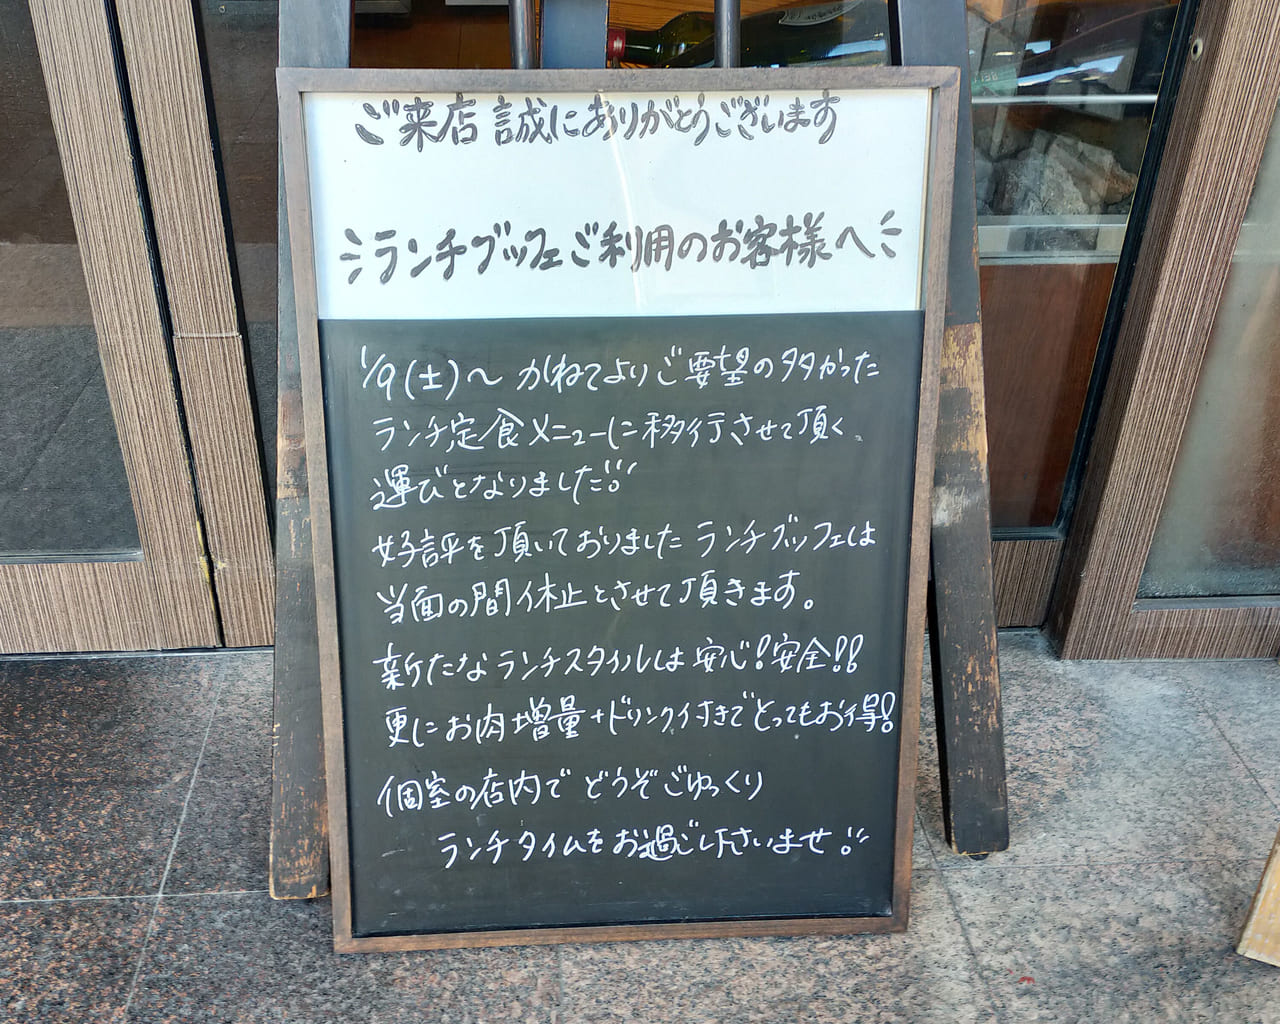 ご来店 誠にありがとうございます
ランチブッフェご利用のお客様へ
1/9(土)～ かねてよりご要望の多かった
ランチ定食メニューに移行させて頂く
運びとなりました!!
好評を頂いておりました ランチブッフェは
当面の間休止とさせて頂きます。
新たなランチスタイルは 安心!安全!!
更にお肉増量+ドリンク付きでとってもお得!
個室の店内で どうぞごゆっくり
ランチタイムをお過ごし下さいませ!!